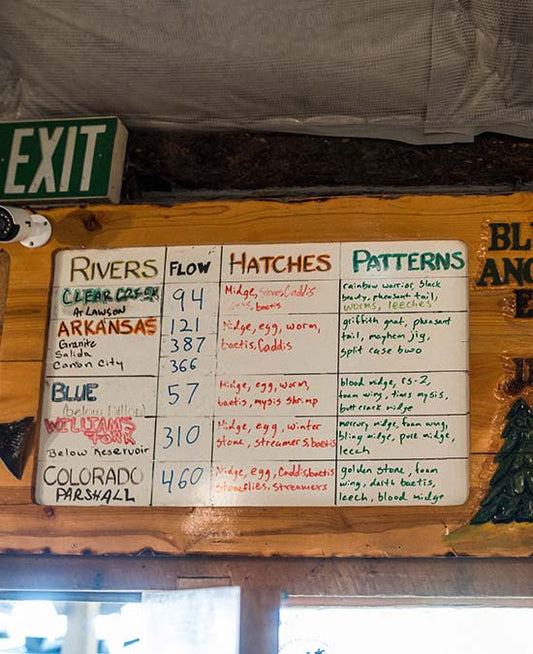 EXIT
RIVERS FLOW HATCHES PATTERNS
CLEAR CREEK
At Lawson
94
Midge, Caddis
baetis
rainbow warrior, black
beauty, pheasant tail,
worms, leeches
ARKANSAS
Granite
Salida
Canon City
121
387
366
Midge, egg, worm,
baetis, Caddis
griffith gnat, pheasant
tail, mayhem jig,
split case bwo
BLUE
(below Dillon)
57
Midge, egg, worm,
baetis, mysis shrimp
blood midge, rs-2,
foam wing, tims mysis,
butt crack midge
WILLIAMS
FORK
Below Reservoir
310
Midge, egg, winter
stone, streamers, baetis
mercury midge, foam wing,
bling midge, pure midge,
leech
COLORADO
PARSHALL
460
Midge, egg, Caddis, baetis
stoneflies, streamers
golden stone, foam
wing, darth baetis,
leech, blood midge
BL
ANG
E